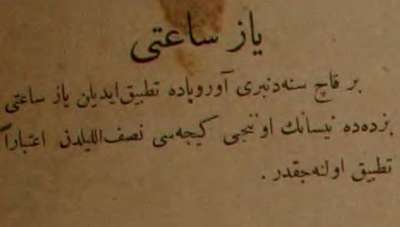 یاز ساعتی
بر قاچ سنه‌دنبری آوروپاده تطبیق ایدیلن یاز ساعتی
بزده‌ده نیسانك اوننجی كیجه‌سی نصف اللیلدن اعتباراً
تطبیق اولنه‌جقدر .